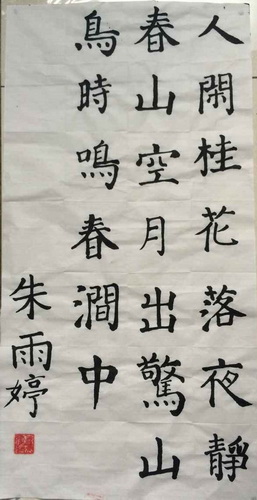 人閑桂花落夜靜
春山空月出驚山
鳥時鳴春澗中
朱雨婷